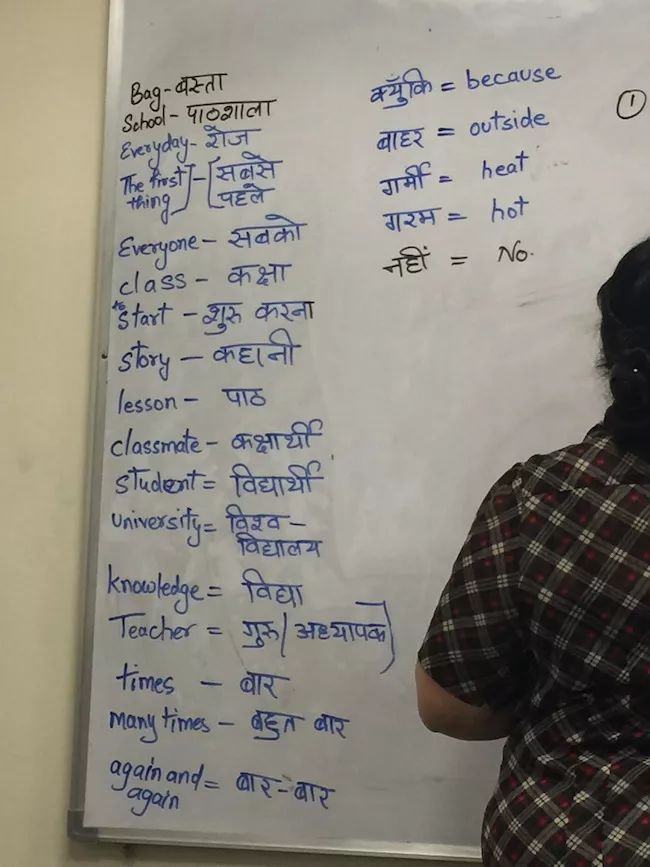 Bag - बस्ता
School - पाठशाला
Everyday - रोज
The first thing - सबसे पहले
Everyone - सबको
class - कक्षा
to start - शुरू करना
story - कहानी
lesson - पाठ
classmate - कक्षार्थी
student = विद्यार्थी
university = विश्व -
विद्यालय
knowledge = विद्या
Teacher = गुरू / अध्यापक
times - बार
many times - बहुत बार
again and again = बार - बार
क्युँकि = because
बाहर = outside
गर्मी = heat
गरम = hot
नहीं = No.
1